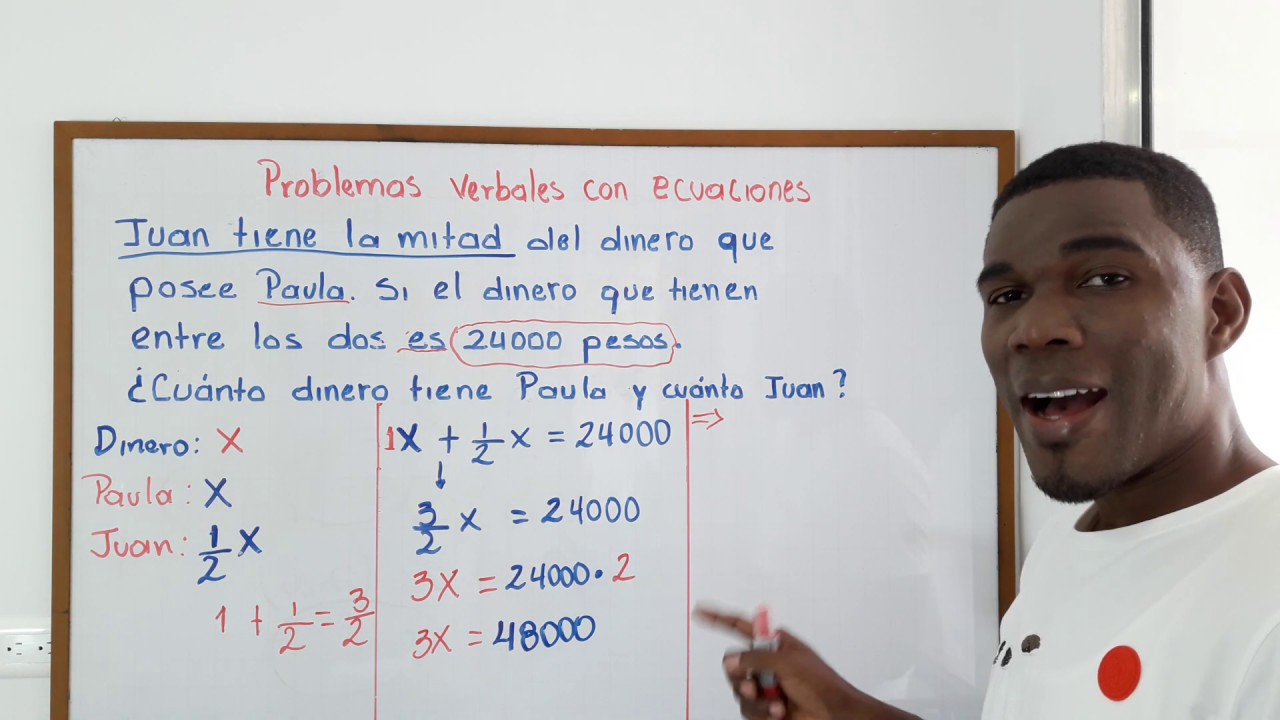 Problemas verbales con ecuaciones
Juan tiene la mitad del dinero que
posee Paula. Si el dinero que tienen
entre los dos es 24000 pesos.
¿Cuánto dinero tiene Paula y cuánto Juan?
Dinero: X
Paula: X
Juan: 1/2 X
1 + 1/2 = 3/2
1X + 1/2 x = 24000
↓
3/2 x = 24000
3X = 24000·2
3X = 48000
⇒